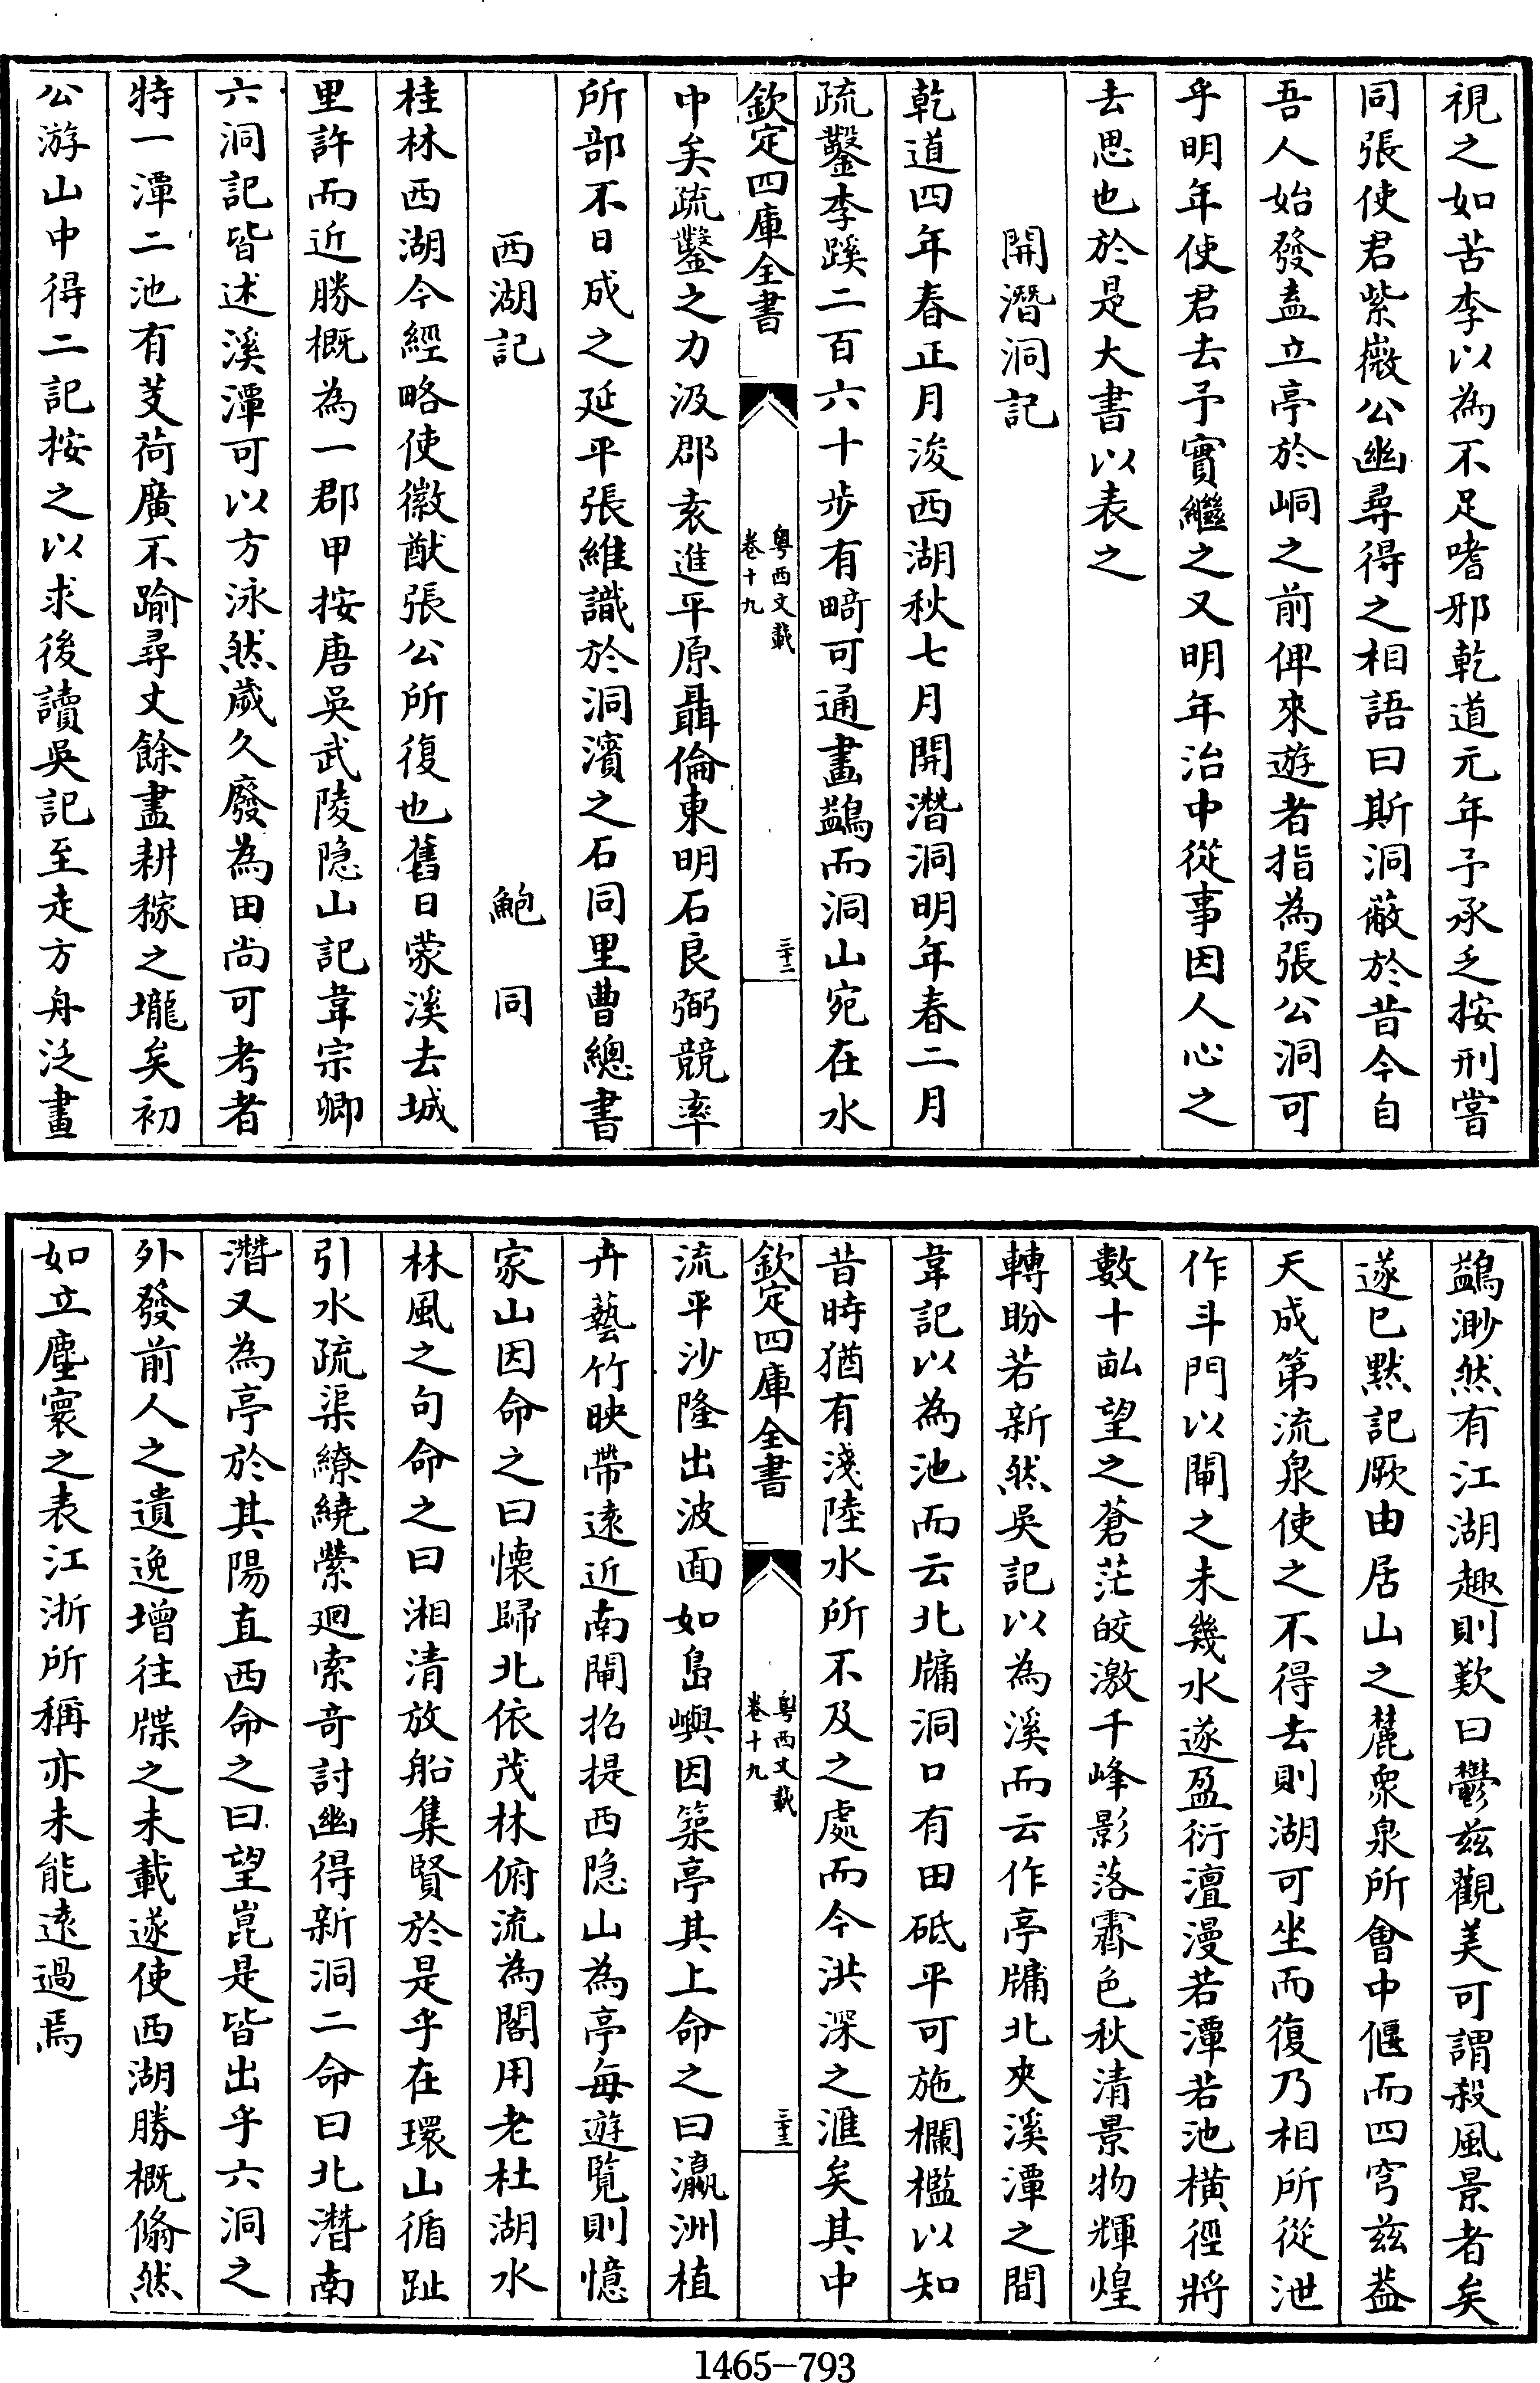 視之如苦李以為不足嗜邪乾道元年予承乏按刑嘗
同張使君紫微公幽尋得之相語曰斯洞蔽於昔今自
吾人始發盍立亭於峒之前俾來遊者指為張公洞可
乎明年使君去予實繼之又明年治中從事因人心之
去思也於是大書以表之
開潛洞記
乾道四年春正月浚西湖秋七月開潛洞明年春二月
疏鑿李蹊二百六十步有畸可通畫鷁而洞山宛在水
欽定四庫全書
粵西文載
卷十九
三十二
中矣疏鑿之力汲郡袁進平原聶倫東明石良弼競率
所部不日成之延平張維識於洞濱之石同里曹總書
西湖記 鮑同
桂林西湖今經略使徽猷張公所復也舊曰蒙溪去城
里許而近勝概為一郡甲按唐吳武陵隐山記韋宗卿
六洞記皆述溪潭可以方泳然歲久廢為田尚可考者
特一潭二池有芰荷廣不踰尋丈餘盡耕稼之壠矣初
公游山中得二記按之以求後讀吳記至走方舟泛畫
鷁渺然有江湖趣則歎曰鬱兹觀美可謂殺風景者矣
遂已默記厥由居山之麓衆泉所會中偃而四穹兹葢
天成第流泉使之不得去則湖可坐而復乃相所從泄
作斗門以閘之未幾水遂盈衍澶漫若潭若池橫徑將
數十畝望之蒼茫皎澈千峰影落霽色秋清景物輝煌
轉盼若新然吳記以為溪而云作亭牖北夾溪潭之間
韋記以為池而云北牖洞口有田砥平可施欄檻以知
昔時猶有淺陸水所不及之處而今洪深之滙矣其中
欽定四庫全書
粵西文載
卷十九
三十三
流平沙隆出波面如島嶼因築亭其上命之曰瀛洲植
卉藝竹映帶遠近南閘招提西隐山為亭每遊覧則憶
家山因命之曰懷歸北依茂林俯流為閣用老杜湖水
林風之句命之曰湘清放船集賢於是乎在環山循趾
引水疏渠繚繞縈廻索竒討幽得新洞二命曰北潛南
潛又為亭於其陽直西命之曰望崑是皆出乎六洞之
外發前人之遺逸增往牒之未載遂使西湖勝概翛然
如立塵寰之表江浙所稱亦未能遠過焉
1465-793